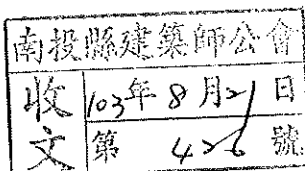 南投縣建築師公會
收文
103年8月21日
第 426 號